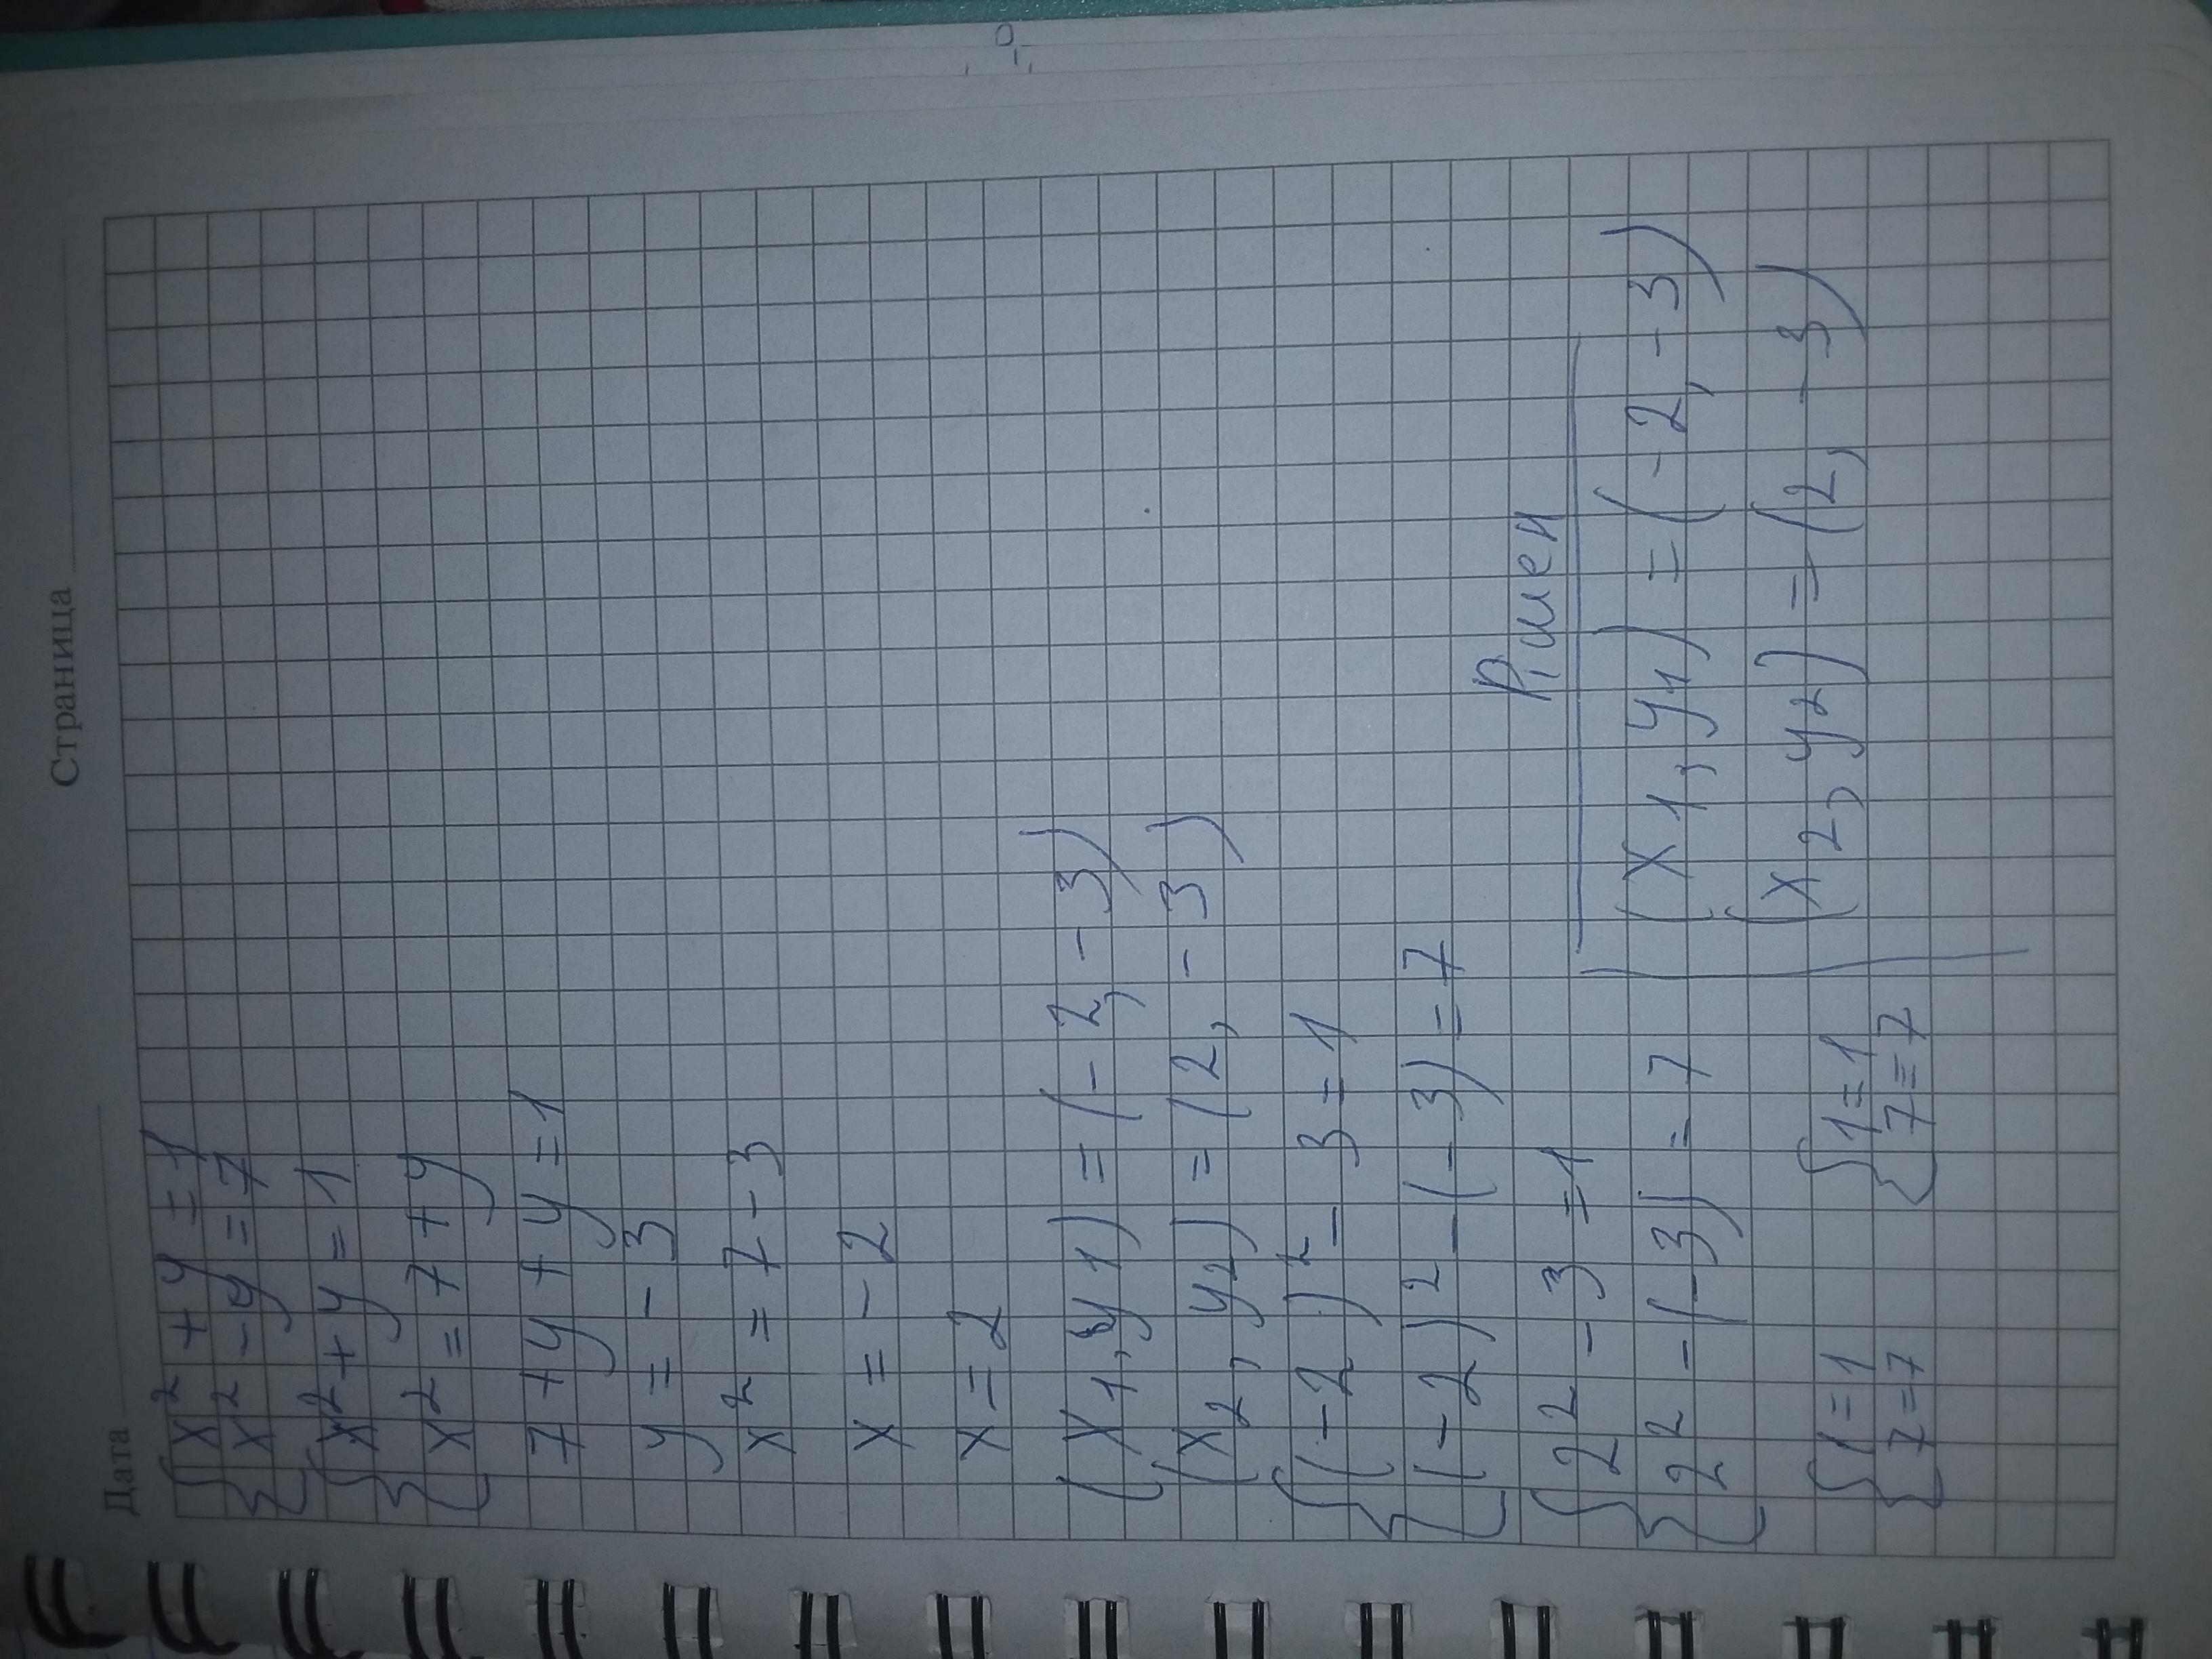 Дата Страница
{x² + y = 1
{x² - y = 7
{x² + y = 1
{x² = 7 + y
7 + y + y = 1
y = - 3
x² = 7 - 3
x = - 2
x = 2
(x1, y1) = (- 2, - 3)
(x2, y2) = (2, - 3)
{(-2)² - 3 = 1
{(-2)² - (-3) = 7
{2² - 3 = 1
{2² - (-3) = 7
{1 = 1 {1 = 1
{7 = 7 {7 = 7
(x1, y1) = (- 2, - 3)
(x2, y2) = (2, - 3)